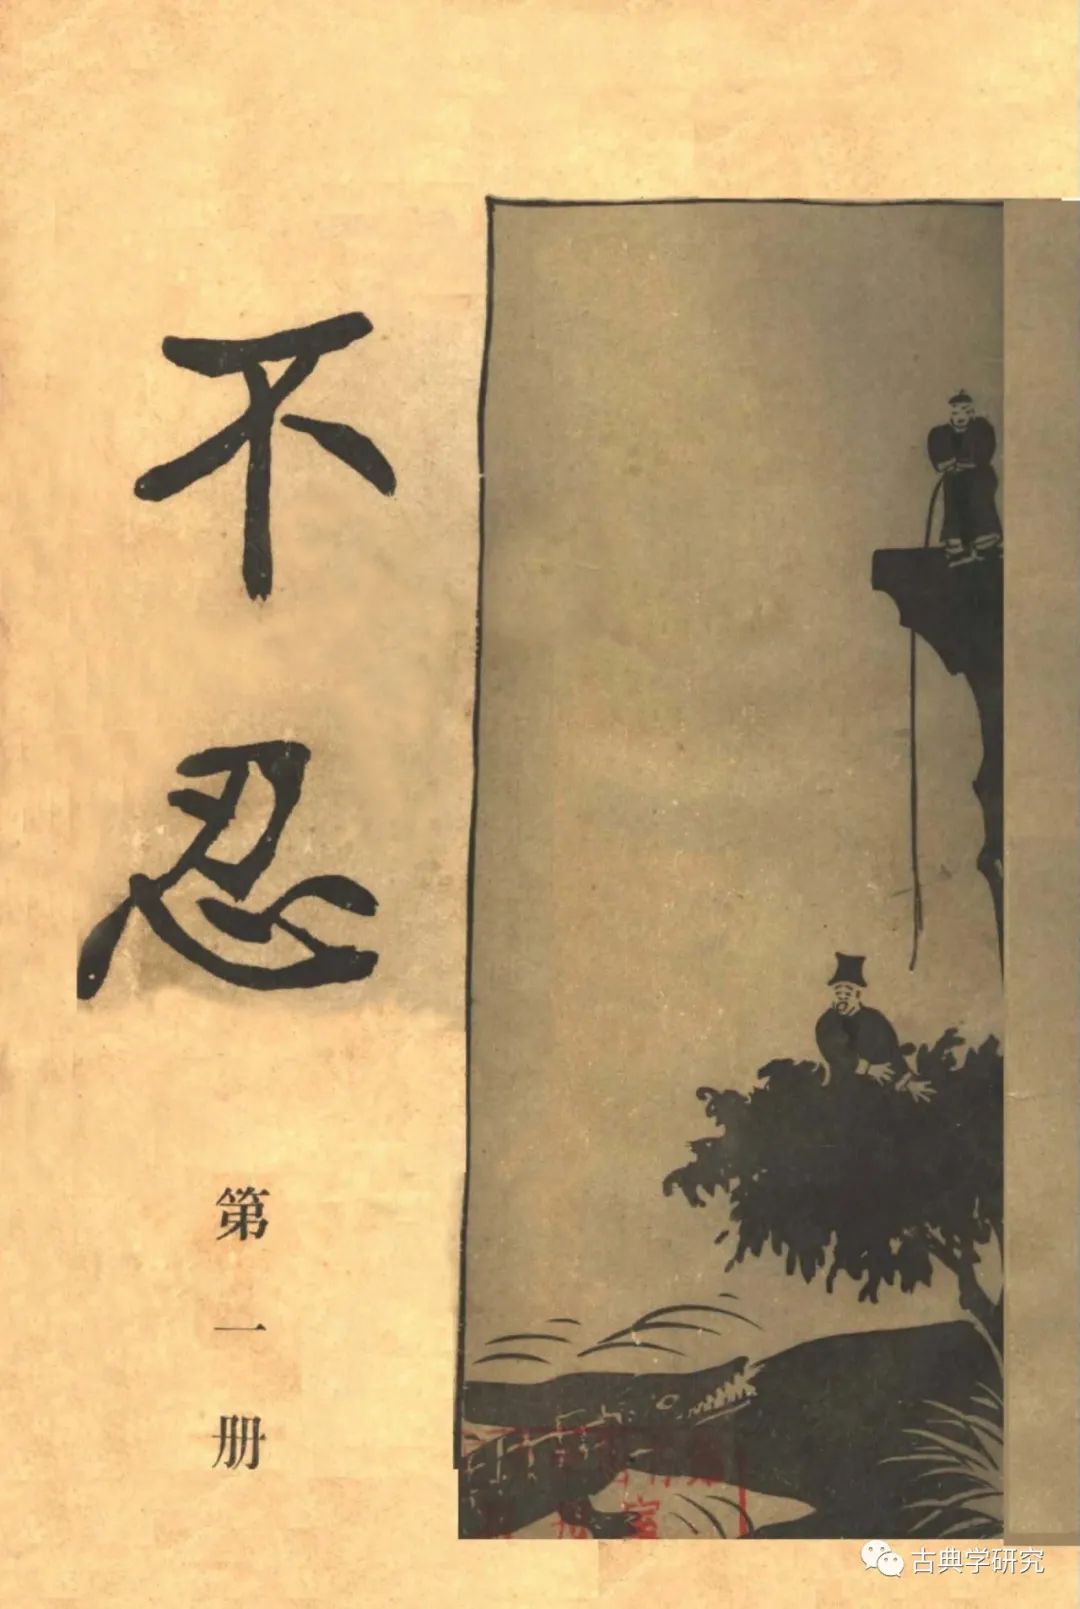 不忍
第一册
古典学研究